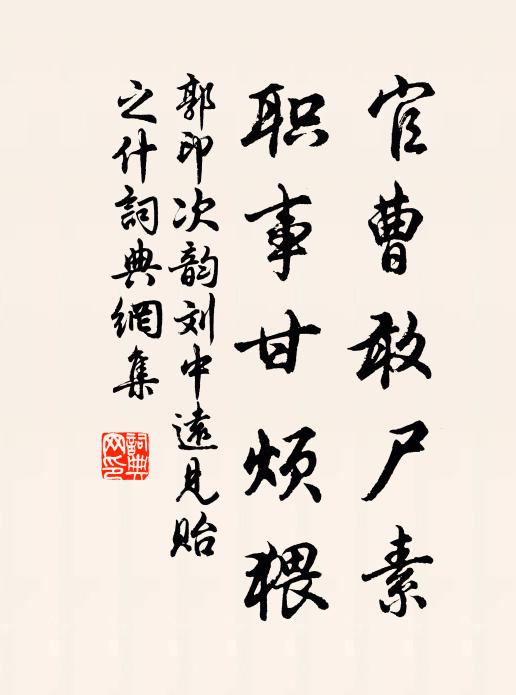 官曹敢尸素
职事甘烦猥
郭印次韵刘中遠见贻
之什詞典網集
詞典
网印